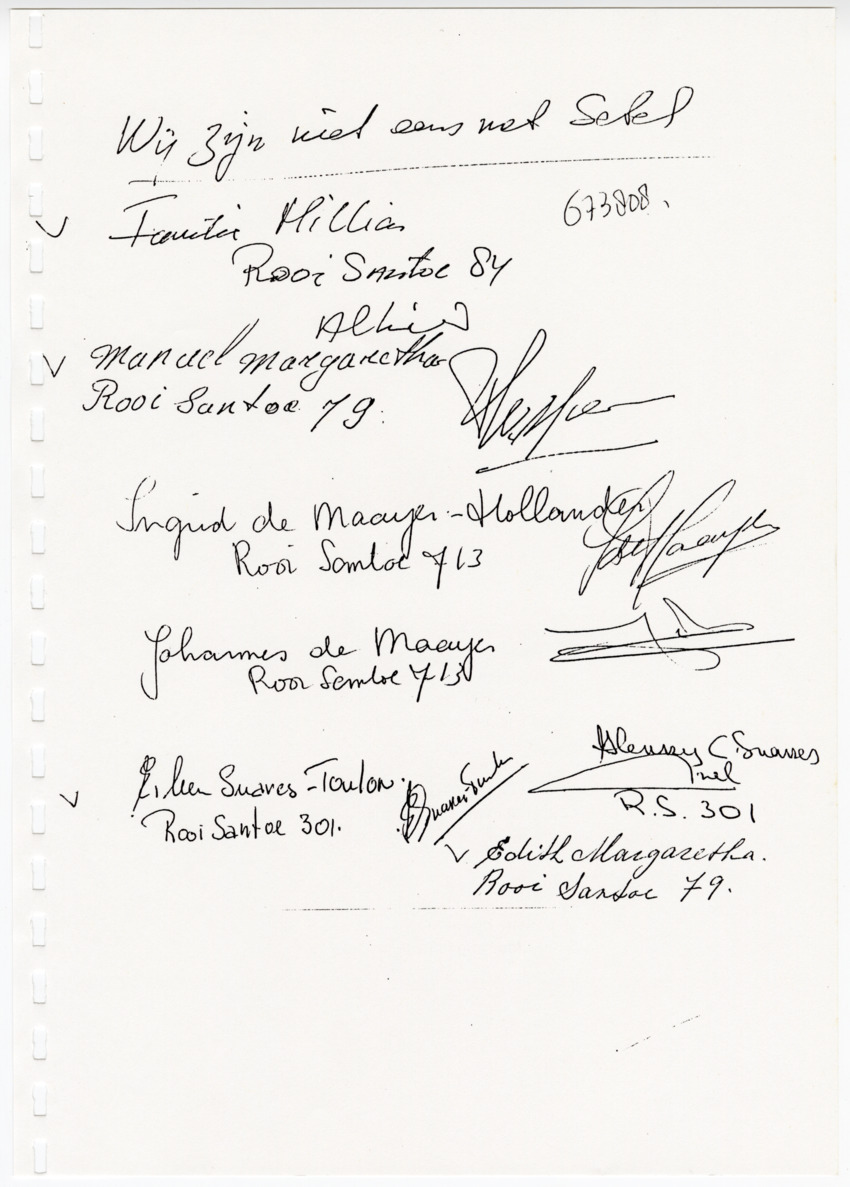 Wij zijn niet eens met Setel
Familie Millian
673808.
Rooi Santoe 84
Alhier
Manuel Margaretha
Rooi Santoe 79.
Ingrid de Maayer-Hollander
Rooi Santoe 713
Johannes de Maayer
Rooi Santoe 713
Eileen Suares-Toulon.
Rooi Santoe 301.
C. Suares
R.S. 301
Edith Margaretha.
Rooi Santoe 79.